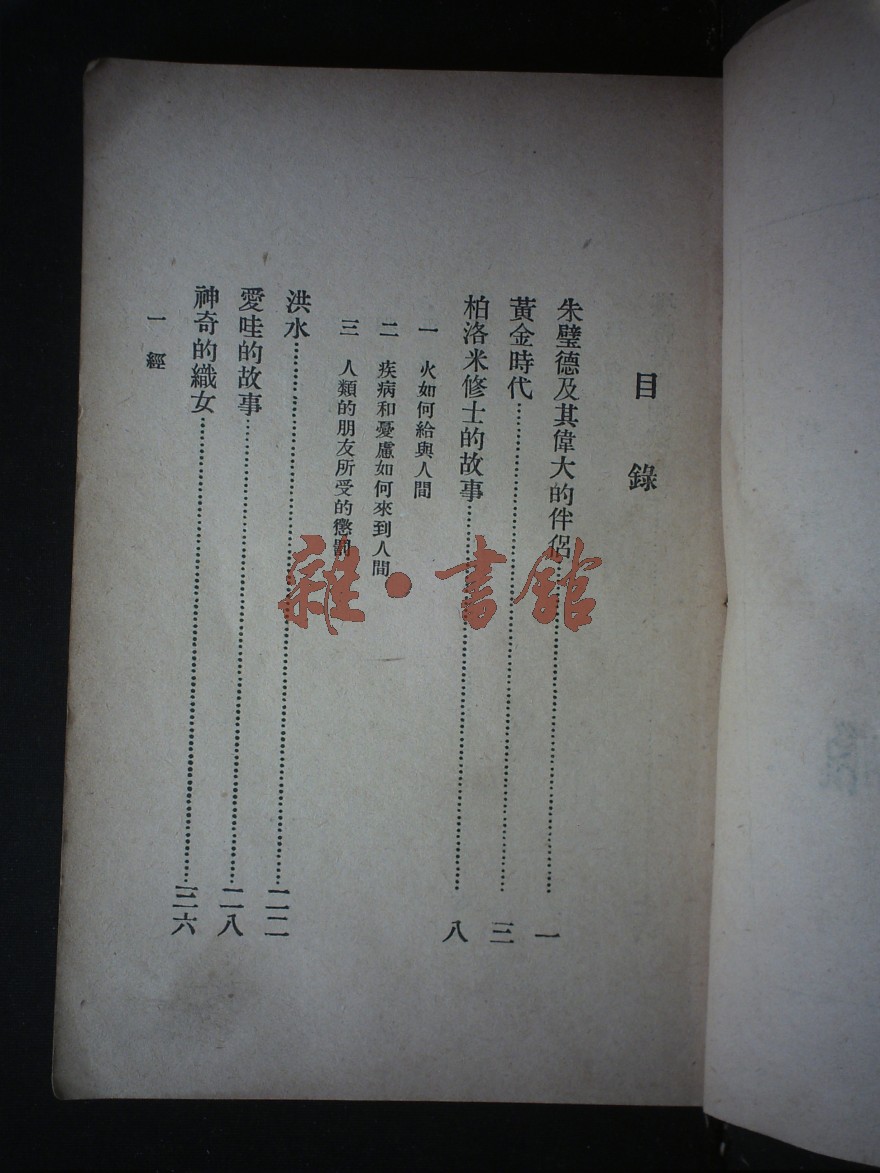 目錄
朱璧德及其偉大的伴侶……一
黃金時代……三
柏洛米修士的故事……八
一 火如何給與人間
二 疾病和憂慮如何來到人間
三 人類的朋友所受的懲罰
洪水……二二
愛哇的故事……二八
神奇的織女……三六
一 經
雜·書館